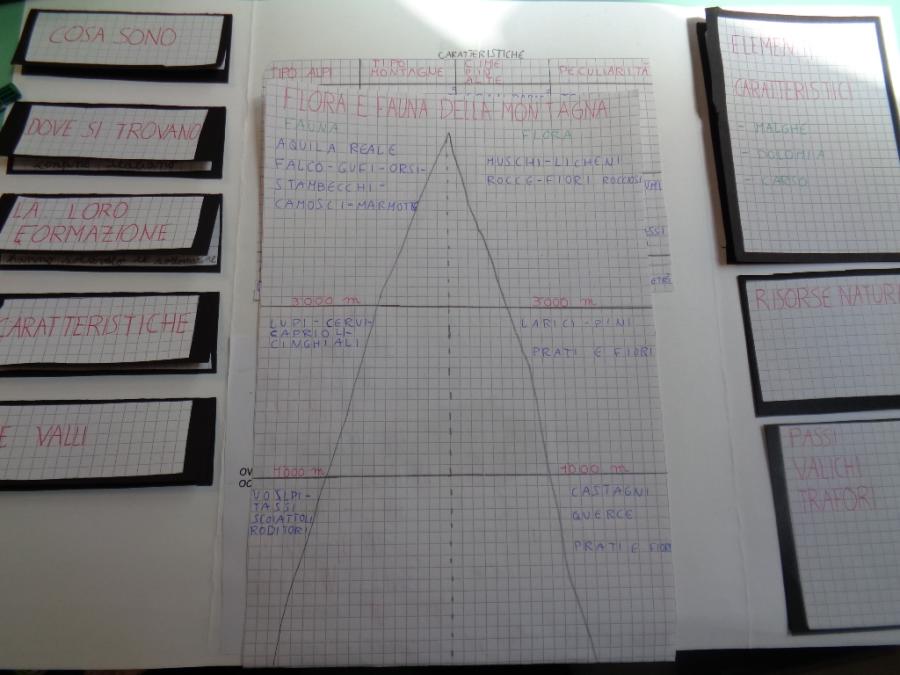 COSA SONO
DOVE SI TROVANO
LA LORO
FORMAZIONE
CARATTERISTICHE
E VALLI
CARATTERISTICHE
TIPO ALPI
TIPO
MONTAGNE
CIME
PIÙ
ALTE
PECULIARITÀ
FLORA E FAUNA DELLA MONTAGNA
FAUNA
AQUILA REALE
FALCO-GUFI-ORSI-
STAMBECCHI-
CAMOSCI-MARMOTTE
FLORA
MUSCHI-LICHENI
ROCCE-FIORI ROCCIOSI
3000 m
3000 m
LUPI-CERVI-
CAPRIOLI-
CINGHIALI
LARICI-PINI
PRATI E FIORI
1000 m
1000 m
VOSLPI-
TASSI
SCOIATTOLI
RODITORI
CASTAGNI
QUERCE
PRATI E FIORI
ELEMENTI
CARATTERISTICI
- MALGHE
- DOLOMIA
- CARSO
RISORSE NATURA
PASSI
VALICHI
TRAFORI